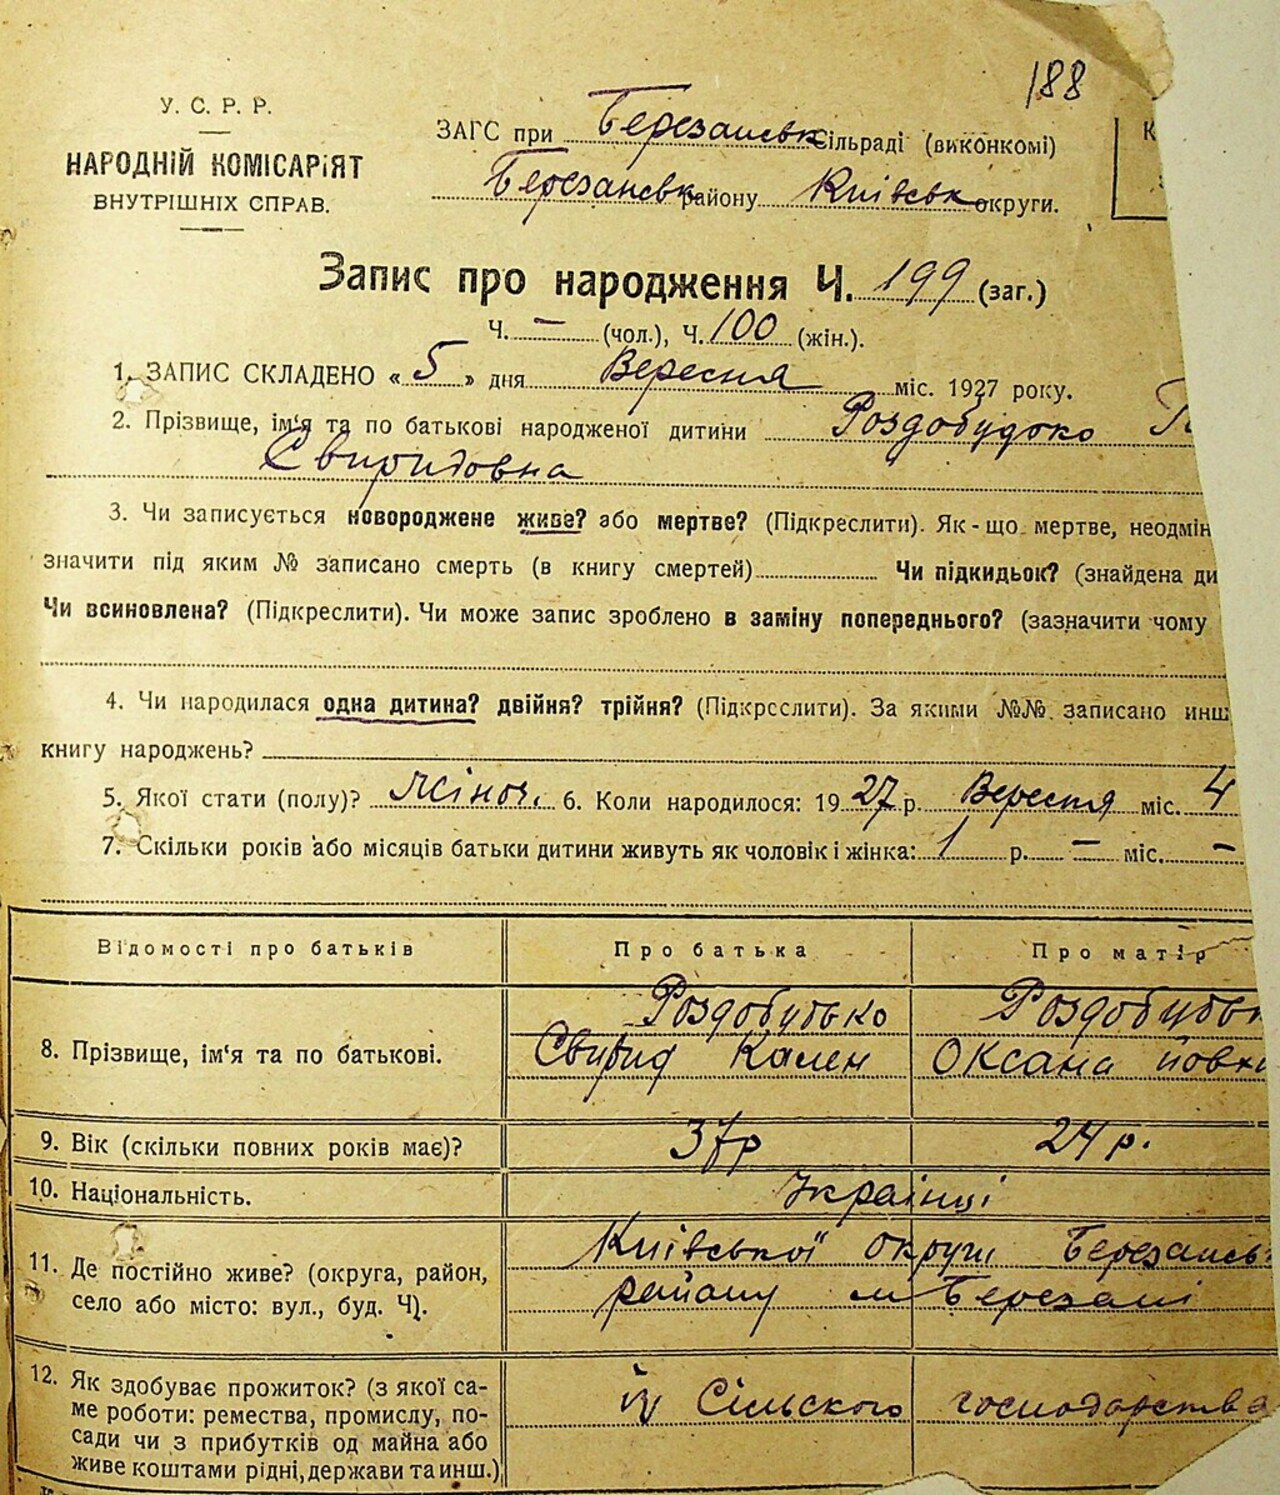 188
У. С. Р. Р.
НАРОДНІЙ КОМІСАРІЯТ
ВНУТРІШНІХ СПРАВ.
ЗАГС при Березанськ сільраді (виконкомі)
Березанськ району Київськ округи.
К
Запис про народження Ч. 199 (заг.)
Ч. — (чол.), Ч. 100 (жін.).
1. ЗАПИС СКЛАДЕНО « 5 » дня Вересня міс. 1927 року.
2. Прізвище, ім'я та по батькові народженої дитини Роздобудоко
Свиридовна
3. Чи записується новороджене живе? або мертве? (Підкреслити). Як-що мертве, неодмін
значити під яким № записано смерть (в книгу смертей) Чи підкидьок? (знайдена ди
Чи всиновлена? (Підкреслити). Чи може запис зроблено в заміну попереднього? (зазначити чому
4. Чи народилася одна дитина? двійня? трійня? (Підкреслити). За якими №№ записано инш
книгу народжень?
5. Якої стати (полу)? жіноч. 6. Коли народилося: 19 27 р. Вересня міс. 4
7. Скільки років або місяців батьки дитини живуть як чоловік і жінка: 1 р. — міс. —
Відомості про батьків Про батька Про матір
Роздобудько Роздобудьк
8. Прізвище, ім'я та по батькові. Свирид Кален Оксана Йовх
9. Вік (скільки повних років має)? 37р 24 р.
10. Національність. Українці
11. Де постійно живе? (округа, район, село або місто: вул., буд. Ч). Київської округи Березансь
району м Березані
12. Як здобуває прожиток? (з якої са-
ме роботи: ремества, промислу, по- із Сільского господарства
сади чи з прибутків од майна або
живе коштами рідні, держави та инш.)